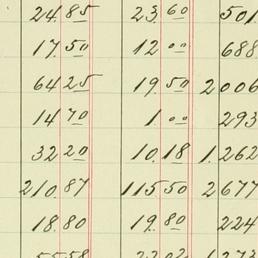 24.85 23.60 501
17.50 12.00 688
64.25 19.50 2006
14.70 1.00 293
32.20 10.18 1.262
210.87 115.50 2677
18.80 19.80 224
55.58 23.02 1273